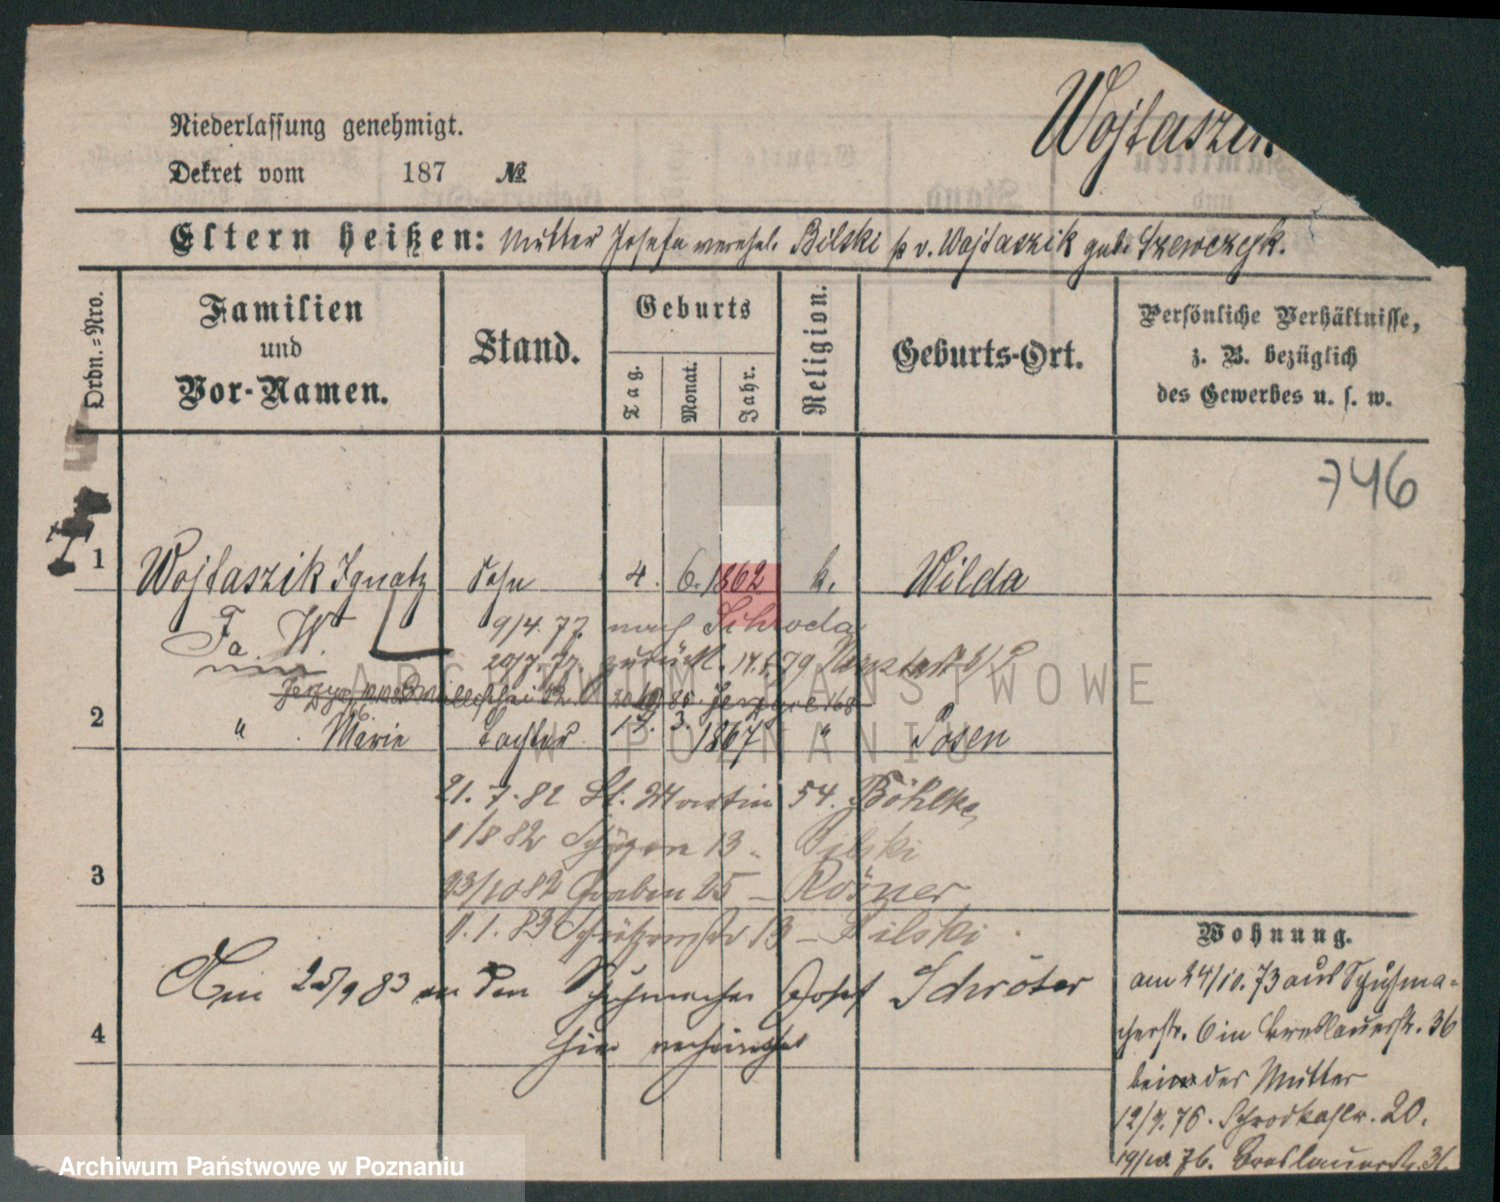 Wojtaszik
Niederlassung genehmigt.
Dekret vom 187 №
Eltern heißen: Mutter Josefa verehel. Bilski fr. v. Wojtaszik geb. Szewczyk.
Ordn.-Nro.
Familien
und
Vor-Namen.
Stand.
Geburts
Tag.
Monat.
Jahr.
Religion.
Geburts-Ort.
Persönliche Verhältnisse,
z. B. bezüglich
des Gewerbes u. s. w.
746
1 Wojtaszik Ignatz Sohn 4. 6. 1862 k. Wilda
Fa. W. 9/4. 77. nach Schroda
20/7. 77. zurück. 14. 79
2 " Marie Tochter 3. 1867 " Posen
21. 7. 82 St. Martin 54. Böhlke
1/8 82 13 - Bilski
3 23/10 82 Graben 25 - Rösner
1. 83 Schützenstr 13 - Bilski
Am 25/9 83 an den Schuhmacher Josef Schröter
4 hier verheirathet
Wohnung.
am 24/10. 73 aus Schuhma-
cherstr. 6 in Breslauerstr. 36
bei der Mutter
12/7. 76. Schrodkastr. 20.
19/10. 76. Breslauerstr. 31.
ARCHIWUM PAŃSTWOWE
W POZNANIU
Archiwum Państwowe w Poznaniu